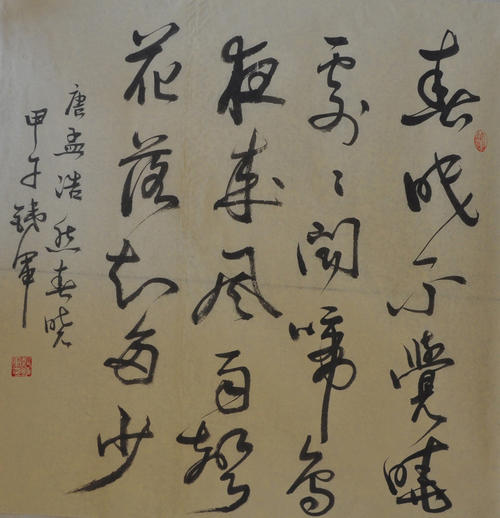 春眠不覺曉
處々聞啼鳥
夜来风雨聲
花落知多少
唐孟浩然春晓
甲午銕軍